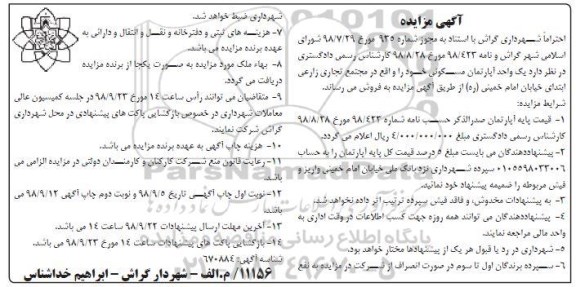 آگهی مزایده
احتراماً شهرداری گراش با استناد به مجوز شماره ۹۳۵ مورخ ۹۸/۷/۲۹ شورای
اسلامی شهر گراش و نامه ۹۸/۴۲۳ مورخ ۹۸/۸/۲۸ کارشناس رسمی دادگستری
در نظر دارد یک واحد آپارتمان مسکونی خود را و واقع در مجتمع تجاری زارعی
ابتدای خیابان امام خمینی (ره) از طریق آگهی مزایده به فروش می رساند.
شرایط مزایده:
۱- قیمت پایه آپارتمان صدرالذکر حسب نامه شماره ۹۸/۴۲۳ مورخ ۹۸/۸/۲۸
کارشناس رسمی دادگستری مبلغ ۴/۰۰۰/۰۰۰/۰۰۰ ریال اعلام می گردد.
۲- پیشنهاددهندگان می بایست مبلغ ۵ درصد قیمت کل پایه آپارتمان را به حساب
۰۱۰۵۵۹۸۰۳۳۰۰۶ سپرده شهرداری نزد بانک ملی خیابان امام خمینی واریز و
فیش مربوطه را ضمیمه پیشنهاد خود نمائید.
۳- به پیشنهادات مخدوش، و فاقد فیش سپرده ترتیب اثر داده نخواهد شد.
۴- پیشنهاددهندگان می توانند همه روزه جهت کسب اطلاعات در وقت اداری به
واحد مالی مراجعه نمایند.
۵- شهرداری در رد یا قبول هر یک از پیشنهادها مختار خواهد بود.
۶- سپرده برندگان اول تا سوم در صورت انصراف از شرکت در مزایده به نفع
شهرداری ضبط خواهد شد.
۷- هزینه های ثبتی و دفترخانه و نقل و انتقال و دارائی به
عهده برنده مزایده می باشد.
۸- بهاء ملک مورد مزایده به صورت یکجا از برنده مزایده
دریافت می گردد.
۹- متقاضیان می توانند رأس ساعت ۱۴ مورخ ۹۸/۹/۲۳ در جلسه کمیسیون عالی
معاملات شهرداری در خصوص بازگشایی پاکت های پیشنهادی در محل شهرداری
گراش شرکت نمایند.
۱۰- هزینه چاپ آگهی به عهده برنده مزایده می باشد.
۱۱- رعایت قانون منع شرکت کارکنان و کارمندان دولتی در مزایده الزامی می
باشد.
۱۲- نوبت اول چاپ آگهی تاریخ ۹۸/۹/۵ و نوبت دوم چاپ آگهی ۹۸/۹/۱۲ می
باشد.
۱۳- آخرین مهلت ارسال پیشنهادات ۹۸/۹/۲۳ ساعت ۱۴ می باشد.
۱۴- بازگشایی پاکت های پیشنهادات ساعت ۱۴ مورخ ۹۸/۹/۲۳ می باشد.
شناسه آگهی: ۶۷۰۸۸۴
۱۱۱۵۶/م.الف - شهردار گراش - ابراهیم خداشناس